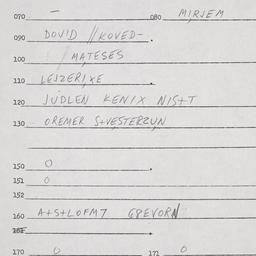 070 — 080 MIRJEM
090 DOVID // KOVED-
100 / MATESES
110 LEJZERIXE
120 JUDLEN KENIX NIS+T
130 OREMER S+VESTERZUN
150 0
151 0
152
160 A+S+LOFM7 GPEVORN
170 0 171 0